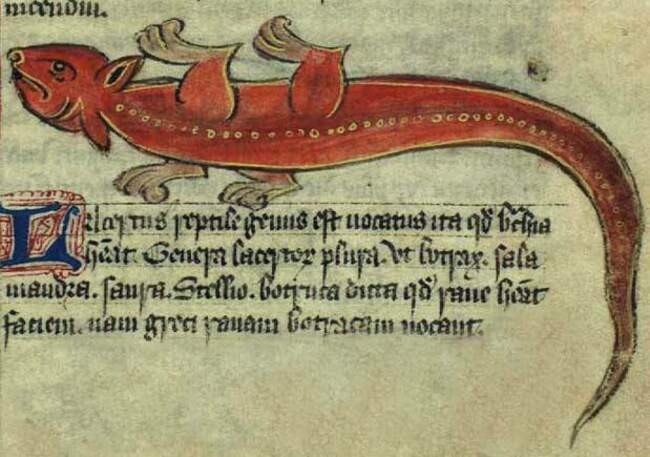 incendiu.
Lacertus reptile genus est uocatus ita qđ bͣchia
hēat. Genera lacertoꝝ plura. Vt botrax. sala
mandra. saura. Stellio. botruca dicta qđ rane hēat
faciem. nam greci ranam botracam uocant.